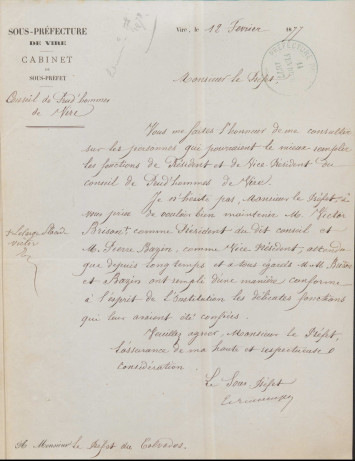 SOUS-PRÉFECTURE
DE VIRE
CABINET
DU
SOUS-PRÉFET
Conseil de Prud'hommes
de Vire
Vire, le 12 Février 1877
Monsieur le Préfet,
Vous me faites l'honneur de me consulter
sur les personnes qui pourraient le mieux remplir
les fonctions de Président et de Vice Président du
conseil de Prud'hommes de Vire.
Je n'hésite pas, Monsieur le Préfet, à
vous prier de vouloir bien maintenir M. Victor
comme Président du dit conseil et
M. Pierre Bazin, comme Vice Président, attendu
que depuis longtemps et à tous égards M.M.
et Bazin ont rempli d'une manière, conforme
à l'esprit de l'Institution les délicates fonctions
qui leur avaient été confiées.
Veuillez agréer, Monsieur le Préfet,
l'assurance de ma haute et respectueuse
considération.
Le Sous Préfet
A Monsieur le Préfet du Calvados.